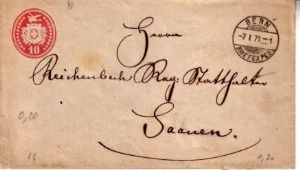 10
BERN
-7.I.79.-1
BRIEFEXPED.
Herrn
Reichenbach Reg: Statthalter
Saanen.
0,20
13
0,20